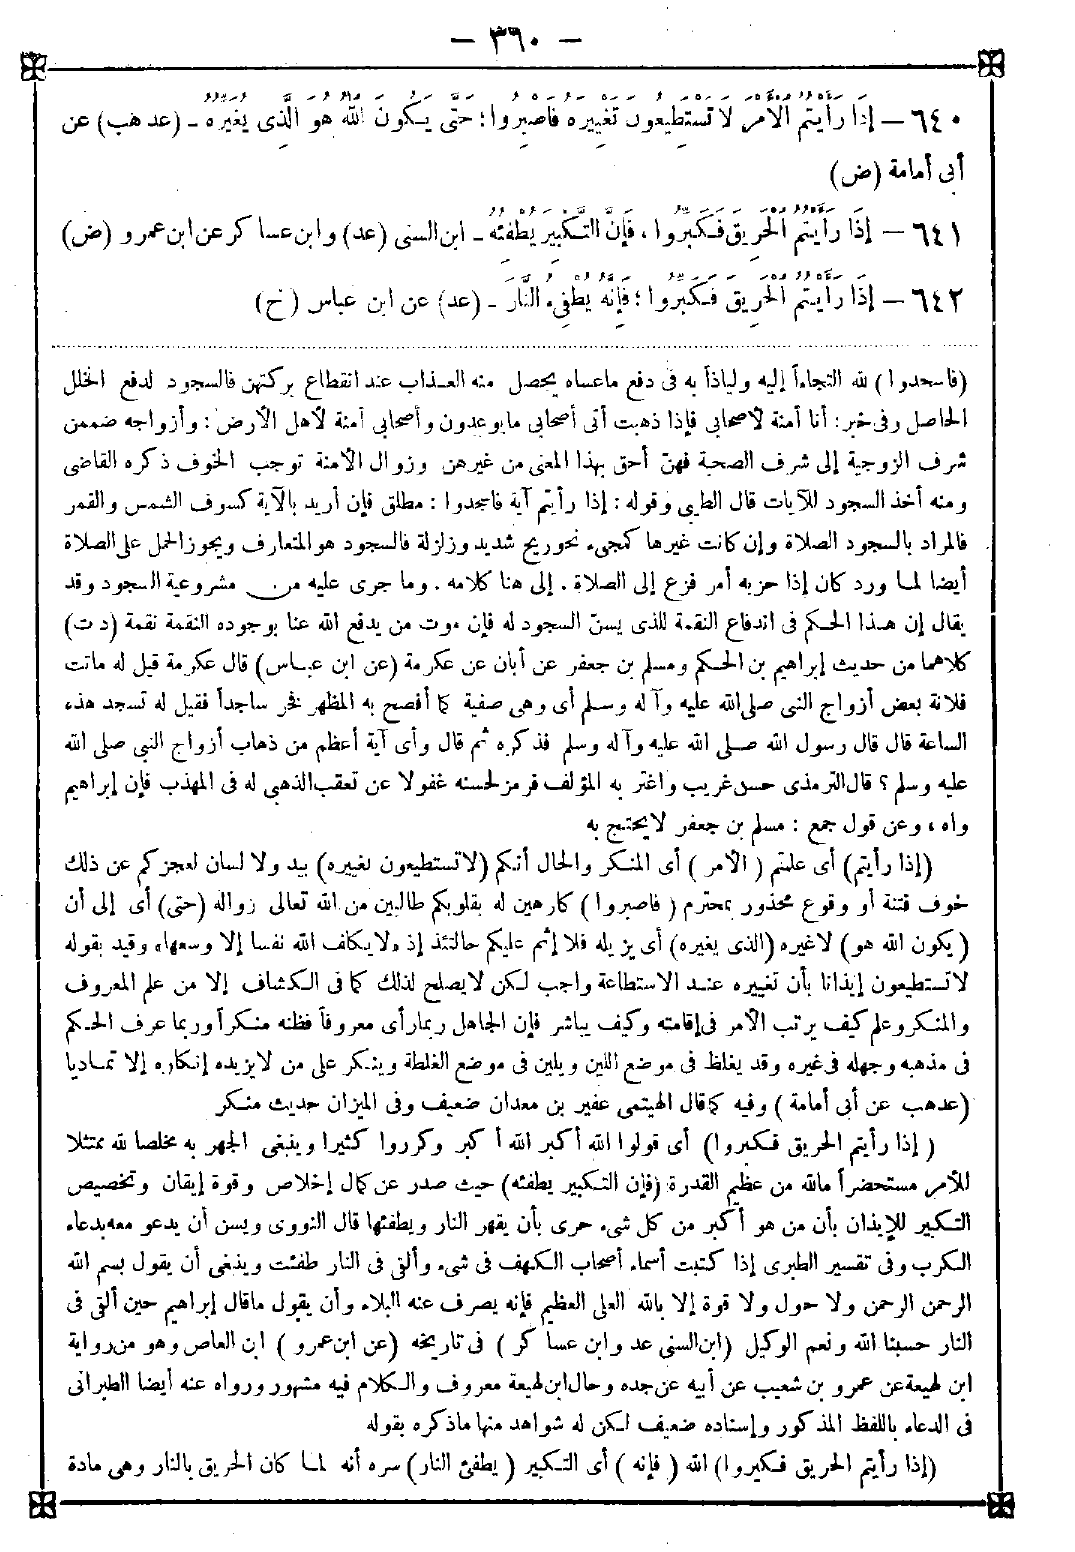 — ٣٦٠ —
٦٤٠ — إِذَا رَأَيْتُمُ الْأَمْرَ لَا تَسْتَطِيعُونَ تَغْيِيرَهُ فَاصْبِرُوا؛ حَتَّى يَكُونَ اللّٰهُ هُوَ الَّذِى يُغَيِّرُهُ ـ (عد هب) عن
أبى أمامة (ض)
٦٤١ — إِذَا رَأَيْتُمُ الْحَرِيقَ فَكَبِّرُوا ، فَإِنَّ التَّكْبِيرَ يُطْفِئُهُ ـ ابن السنى (عد) وابن عساكر عن ابن عمرو (ض)
٦٤٢ — إِذَا رَأَيْتُمُ الْحَرِيقَ فَكَبِّرُوا ؛ فَإِنَّهُ يُطْفِىءُ النَّارَ ـ (عد) عن ابن عباس (خ)
(فاسجدوا) لله التجاءاً إليه ولياذاً به فى دفع ماعساه يحصل منه العذاب عند انقطاع بركتهن فالسجود لدفع الخلل
الحاصل وفى خبر: أنا أمنة لأصحابى فإذا ذهبت أتى أصحابى مايوعدون وأصحابى أمنة لأهل الأرض: وأزواجه ضممن
شرف الزوجية إلى شرف الصحبة فهنّ أحق بهذا المعنى من غيرهن وزوال الأمنة توجب الخوف ذكره القاضى
ومنه أخذ السجود للآيات قال الطيبى وقوله : إذا رأيتم آية فاسجدوا : مطلق فإن أريد بالآية كسوف الشمس والقمر
فالمراد بالسجود الصلاة وإن كانت غيرها كمجىء نحوريح شديد وزلزلة فالسجود هو المتعارف ويجوز الحمل على الصلاة
أيضا لما ورد كان إذا حزبه أمر فزع إلى الصلاة . إلى هنا كلامه . وما جرى عليه من مشروعية السجود وقد
يقال إن هذا الحكم فى اندفاع النقمة للذى يسنّ السجود له فإن موت من يدفع الله عنا بوجوده النقمة نقمة (د ت)
كلاهما من حديث إبراهيم بن الحكم ومسلم بن جعفر عن أبان عن عكرمة (عن ابن عباس) قال عكرمة قيل له ماتت
فلانة بعض أزواج النبى صلى الله عليه وآله وسلم أى وهى صفية كما أفصح به المظهر فخر ساجداً فقيل له تسجد هذه
الساعة قال قال رسول الله صلى الله عليه وآله وسلم فذكره ثم قال وأى آية أعظم من ذهاب أزواج النبي صلى الله
عليه وسلم ؟ قال الترمذى حسن غريب واغتر به المؤلف فرمز لحسنه غفولا عن تعقب الذهبى له فى المهذب فإن إبراهيم
واه ، وعن قول جمع : مسلم بن جعفر لايحتج به
(إذا رأيتم) أى علمتم (الأمر) أى المنكر والحال أنكم (لاتستطيعون تغييره) بيد ولا لسان لعجزكم عن ذلك
خوف فتنة أو وقوع محذور بمحترم (فاصبروا) كارهين له بقلوبكم طالبين من الله تعالى زواله (حتى) أى إلى أن
(يكون الله هو) لاغيره (الذى يغيره) أى يزيله فلا إثم عليكم حالتئذ إذ «لايكلف الله نفسا إلا وسعها» وقيد بقوله
لاتستطيعون إيذانا بأن تغييره عند الاستطاعة واجب لكن لايصلح لذلك كما فى الكشاف إلا من علم المعروف
والمنكر وعلم كيف يرتب الأمر فى إقامته وكيف يباشر فإن الجاهل ربما رأى معروفاً فظنه منكراً وربما عرف الحكم
فى مذهبه وجهله فى غيره وقد يغلظ فى موضع اللين ويلين فى موضع الغلظة وينكر على من لايزيده إنكاره إلا تماديا
(عد هب عن أبى أمامة) وفيه كما قال الهيتمى عفير بن معدان ضعيف وفى الميزان حديث منكر
(إذا رأيتم الحريق فكبروا) أى قولوا الله أكبر الله أكبر وكرروا كثيرا وينبغى الجهر به مخلصا لله ممتثلا
للأمر مستحضراً مالله من عظيم القدرة (فإن التكبير يطفئه) حيث صدر عن كمال إخلاص وقوة إيقان وتخصيص
التكبير للإيذان بأن من هو أكبر من كل شىء حرى بأن يقهر النار ويطفئها قال النووى ويسن أن يدعو معه بدعاء
الكرب وفى تفسير الطبرى إذا كتبت أسماء أصحاب الكهف فى شىء وألقى فى النار طفئت وينبغى أن يقول بسم الله
الرحمن الرحمن ولا حول ولا قوة إلا بالله العلى العظيم فإنه يصرف عنه البلاء وأن يقول ماقال إبراهيم حين ألقى فى
النار حسبنا الله ونعم الوكيل (ابن السنى عد وابن عساكر) فى تاريخه (عن ابن عمرو) ابن العاص وهو من رواية
ابن لهيعة عن عمرو بن شعيب عن أبيه عن جده وحال ابن لهيعة معروف والكلام فيه مشهور ورواه عنه أيضا الطبرانى
فى الدعاء باللفظ المذكور وإسناده ضعيف لكن له شواهد منها ماذكره بقوله
(إذا رأيتم الحريق فكبروا) الله (فإنه) أى التكبير (يطفئ النار) سره أنه لما كان الحريق بالنار وهى مادة